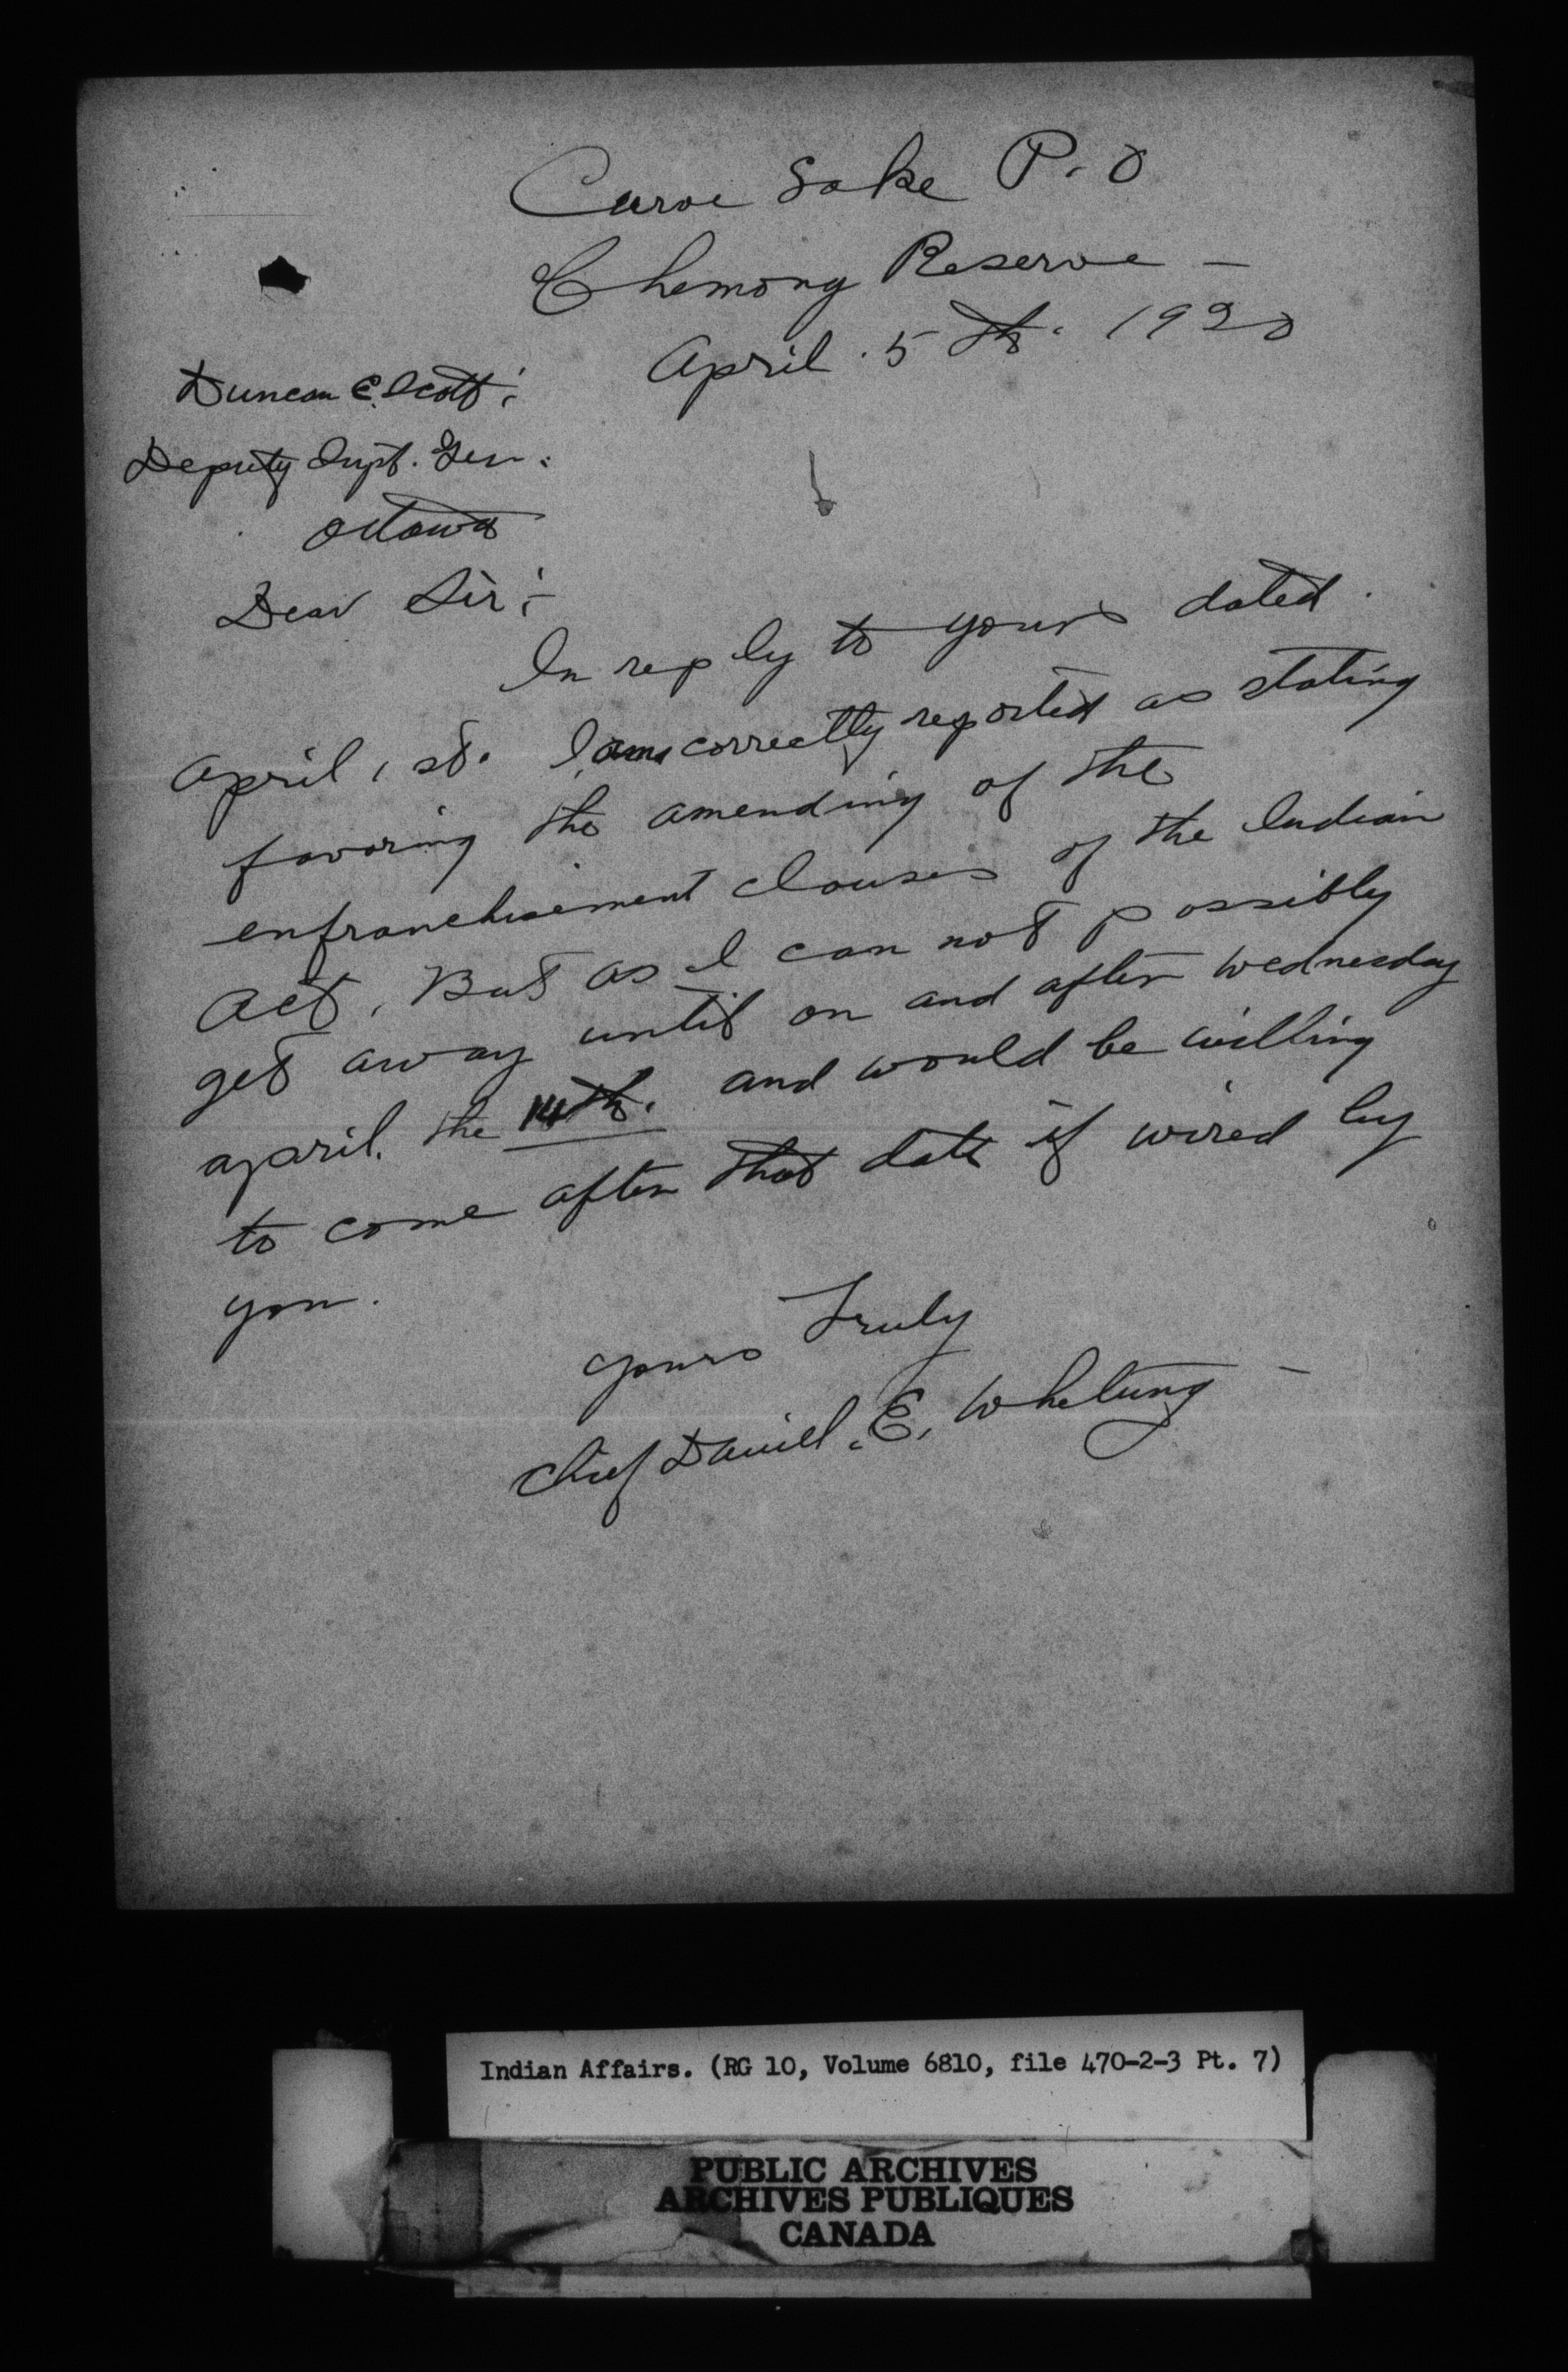 Curve Lake P. O
Chemong Reserve —
April . 5 th. 1920
Duncan C. Scott;
Deputy Supt. Gen:
Ottawa
Dear Sir;-
In reply to yours dated.
April 1 st. I am correctly reported as stating
favoring the amending of the
enfranchisement clauses of the Indian
Act, But as I can not possibly
get away until on and after Wednesday
april. the 14th. and would be willing
to come after that date if wired by
you.
yours Truly
Chief Daniel. E. Whetung —
Indian Affairs. (RG 10, Volume 6810, file 470-2-3 Pt. 7)
PUBLIC ARCHIVES
ARCHIVES PUBLIQUES
CANADA